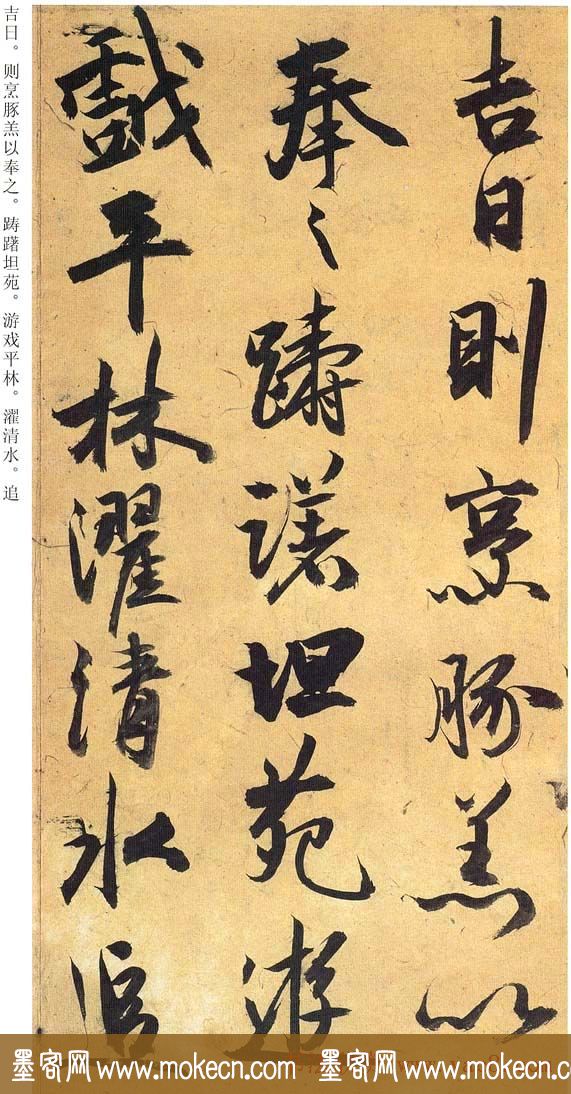 吉日則烹豚羔以
奉之躊躇坦苑游
戲平林濯清水追
吉日。则烹豚羔以奉之。踌躇坦苑。游戏平林。濯清水。追
墨客网 www.mokecn.com 墨客网 www.mokecn.com